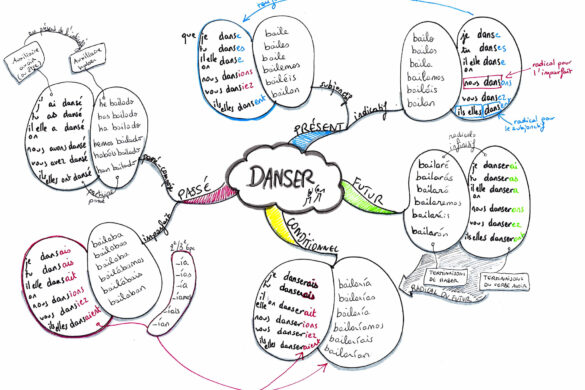 DANSER
PRÉSENT
subjonctif
indicatif
que je danse
tu danses
il elle danse
on
nous dansions
vous dansiez
ils elles dansent
baile
bailes
baile
bailemos
bailéis
bailen
bailo
bailas
baila
bailamos
bailáis
bailan
je danse
tu danses
il elle danse
on
nous dansons
vous dansez
ils elles dansent
radical pour
l'imparfait
radical pour
le subjonctif
FUTUR
bailaré
bailarás
bailará
bailaremos
bailaréis
bailarán
je danserai
tu danseras
il elle dansera
on
nous danserons
vous danserez
ils elles danseront
TERMINAISONS
DE HABER
TERMINAISONS
DU VERBE AVOIR
RADICAL DU FUTUR
CONDITIONNEL
je danserais
tu danserais
il elle danserait
on
nous danserions
vous danseriez
ils elles danseraient
bailaría
bailarías
bailaría
bailaríamos
bailaríais
bailarían
PASSÉ
passé composé
imparfait
Auxiliaire
avoir
Auxiliaire
haber
j'ai dansé
tu as dansé
il elle a dansé
on
nous avons dansé
vous avez dansé
ils elles ont dansé
he bailado
has bailado
ha bailado
hemos bailado
habéis bailado
han bailado
participe
passé
je dansais
tu dansais
il elle dansait
on
nous dansions
vous dansiez
ils elles dansaient
bailaba
bailabas
bailaba
bailábamos
bailabais
bailaban
2e/3e gpe
-ía
-ías
-ía
-íamos
-íais
-ían